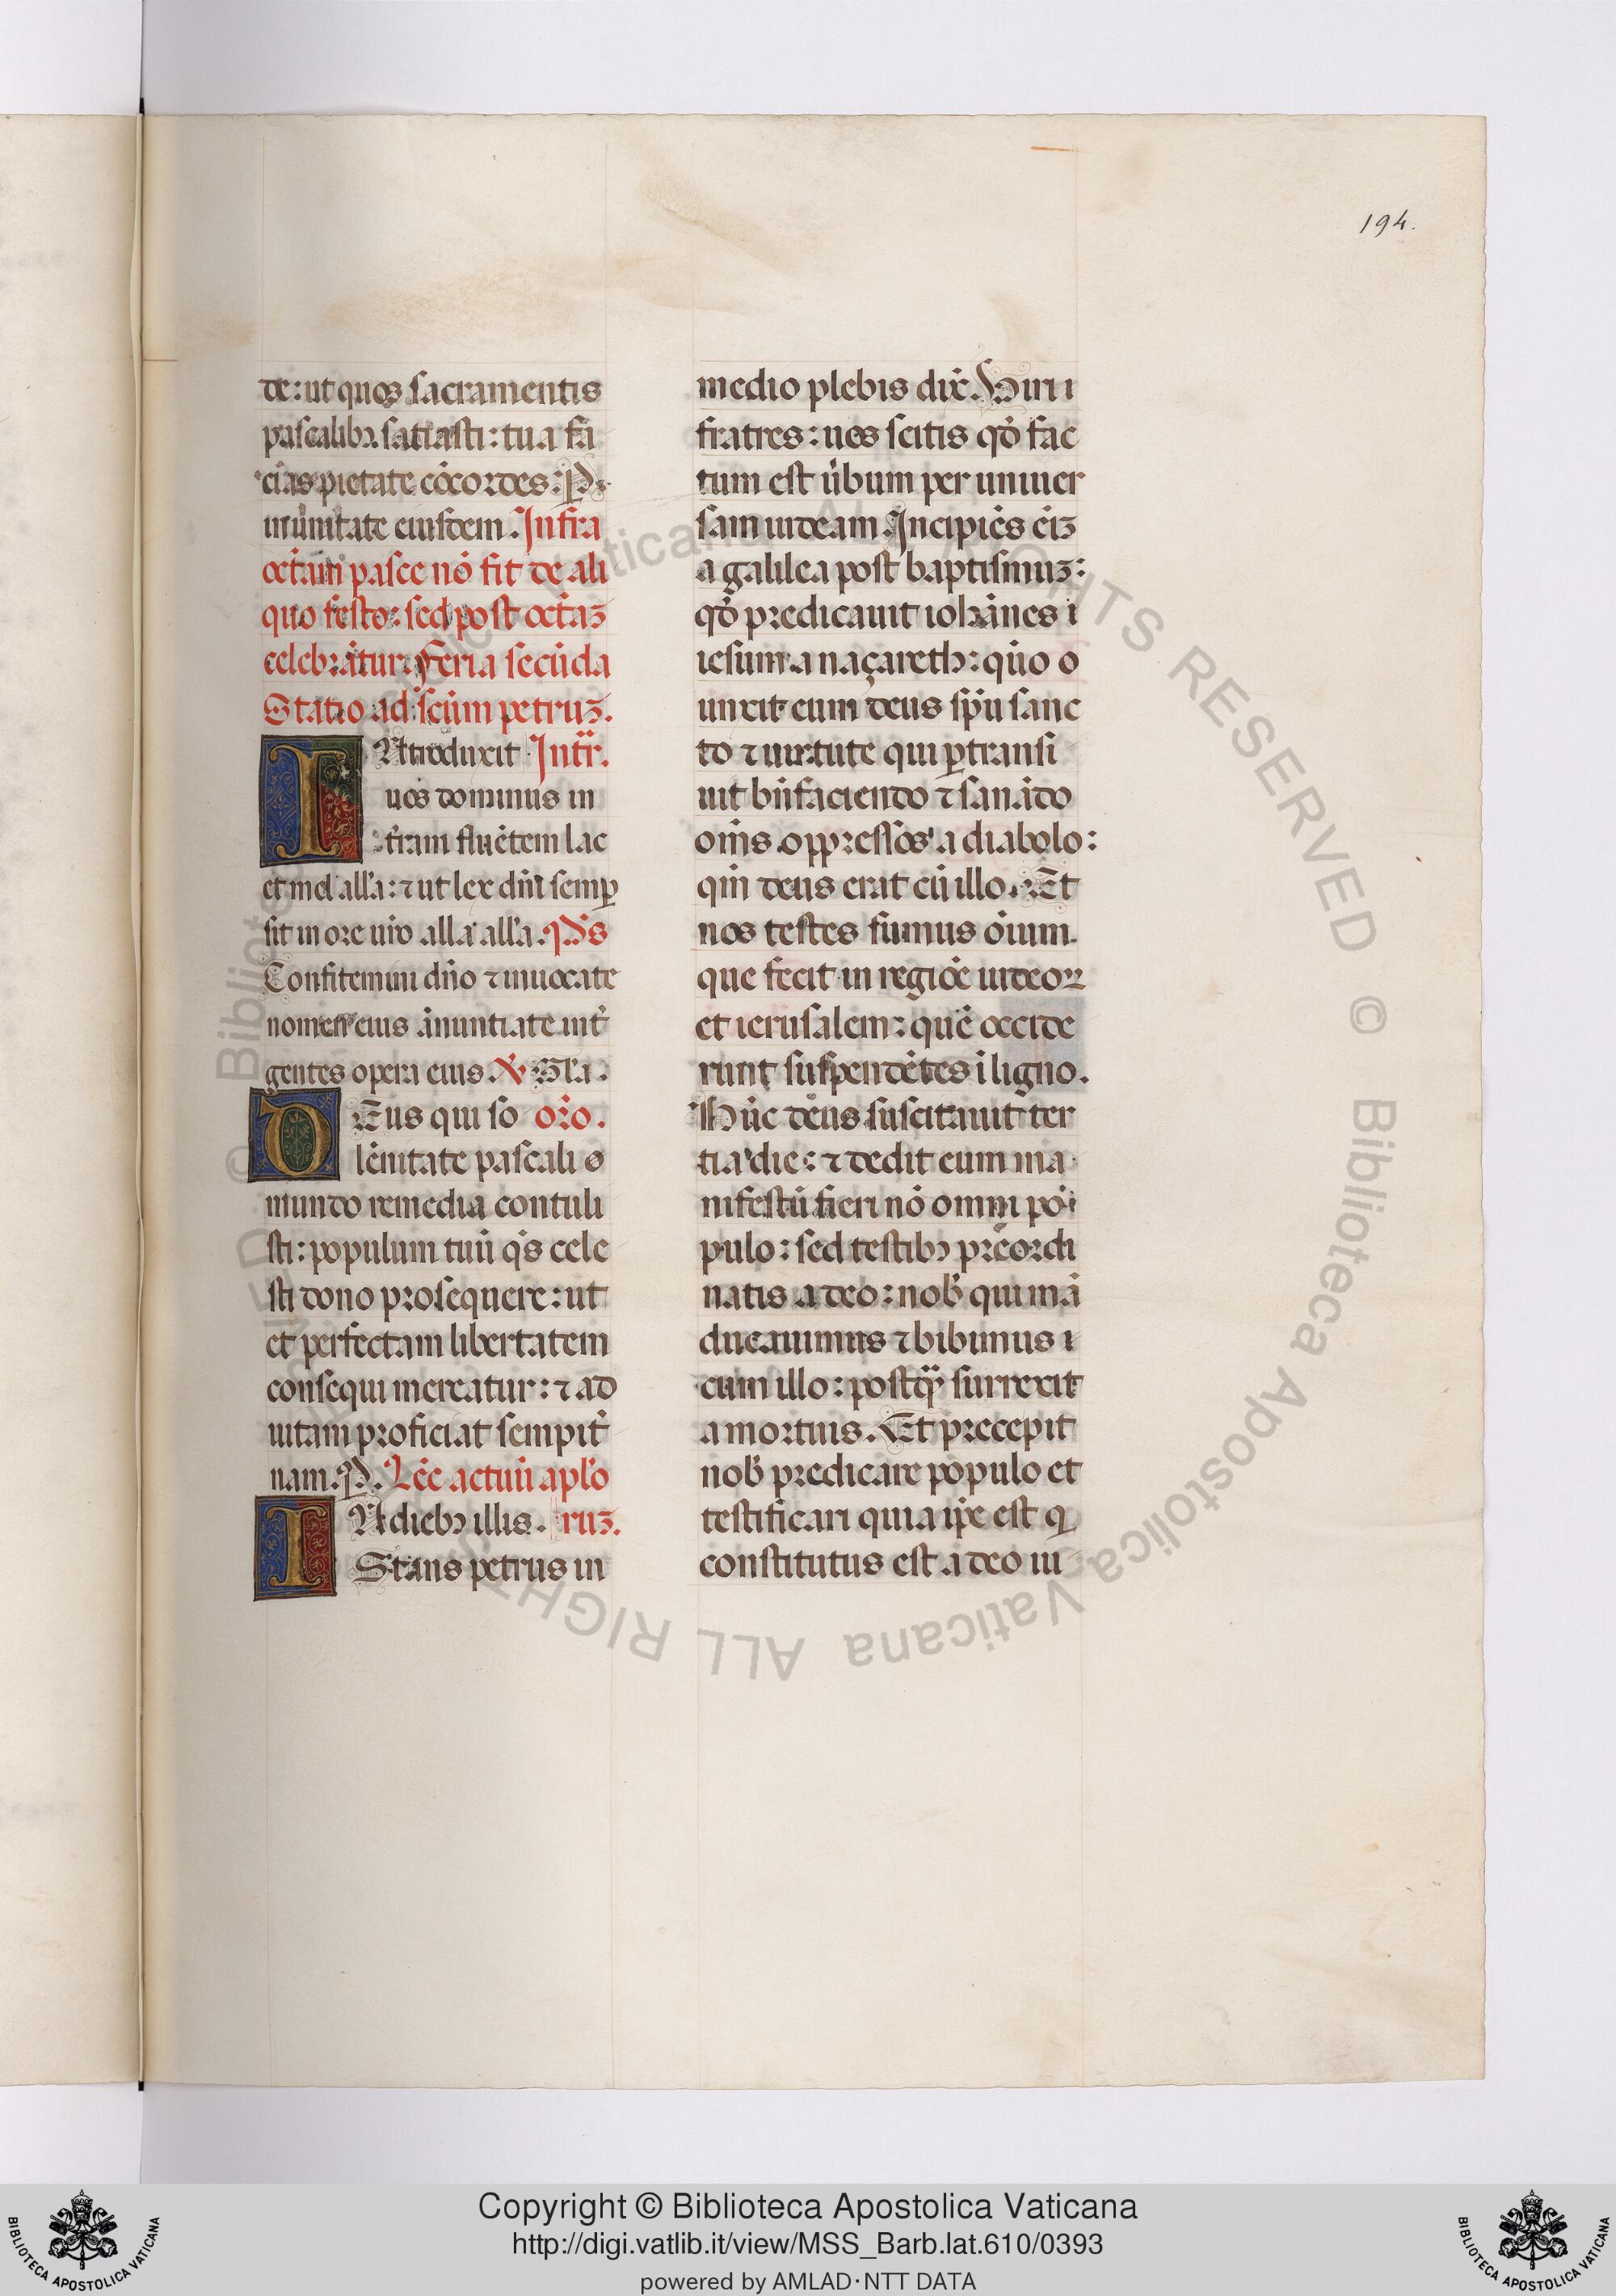 194.
de: ut quos sacramentis
pascalibꝫ satiasti: tua fa
cias pietate cōcordes: P
in unitate eiusdem. Infra
octam̄ pasce nō fit de ali
quo festo: sed post octaꝫ
celebratur. Feria secūda
Statio ad scūm petruꝫ.
INtroduxit Intr̄.
uos dominus in
tr̄am fluētem lac
et mel all'a: ⁊ ut lex dn̄i semꝑ
sit in ore ur̄o all'a all'a. Ps
Confitemini dn̄o ⁊ inuocate
nomen eius ānuntiate int̄
gentes opera eius. V. Gl'a.
DEus qui so or̄o.
lēnitate pascali
mundo remedia contuli
sti: populum tuū q̄s cele
sti dono prosequere: ut
et perfectam libertatem
consequi mereatur: ⁊ ad
uitam proficiat sempit̄
nam. P. Lēc actuū apl'o
IN diebꝫ illis. ruꝫ.
Stans petrus in
medio plebis dix̄. Uiri
fratres: uos scitis qd̄ fac
tum est ūbum per uniuer
sam iudeam. Incipiēs eīꝫ
a galilea post baptismuꝫ:
qd̄ predicauit iohānes
iesum a naçareth: quō
unxit eum deus sp̄u sanc
to ⁊ uirtute qui ꝑtransi
uit bn̄faciendo ⁊ sanādo
om̄s oppressos a diabolo:
qm̄ deus erat cū illo. Et
nos testes sumus ōium
que fecit in regiōe iudeoꝝ
et ierusalem: quē occide
runt suspendētes ī ligno.
Hūc deus suscitauit ter
tia die: ⁊ dedit eum ma
nifestū fieri nō omni po
pulo: sed testibꝫ preordi
natis a deo: nob̄ qui mā
ducauimus ⁊ bibimus
cum illo: postq̄ surrexit
a mortuis. Et precepit
nob̄ predicare populo et
testificari quia ip̄e est q
constitutus est a deo iu
Copyright © Biblioteca Apostolica Vaticana
http://digi.vatlib.it/view/MSS_Barb.lat.610/0393
powered by AMLAD·NTT DATA
BIBLIOTECA APOSTOLICA VATICANA
BIBLIOTECA APOSTOLICA VATICANA
© Biblioteca Apostolica Vaticana ALL RIGHTS RESERVED
© Biblioteca Apostolica Vaticana ALL RIGHTS RESERVED